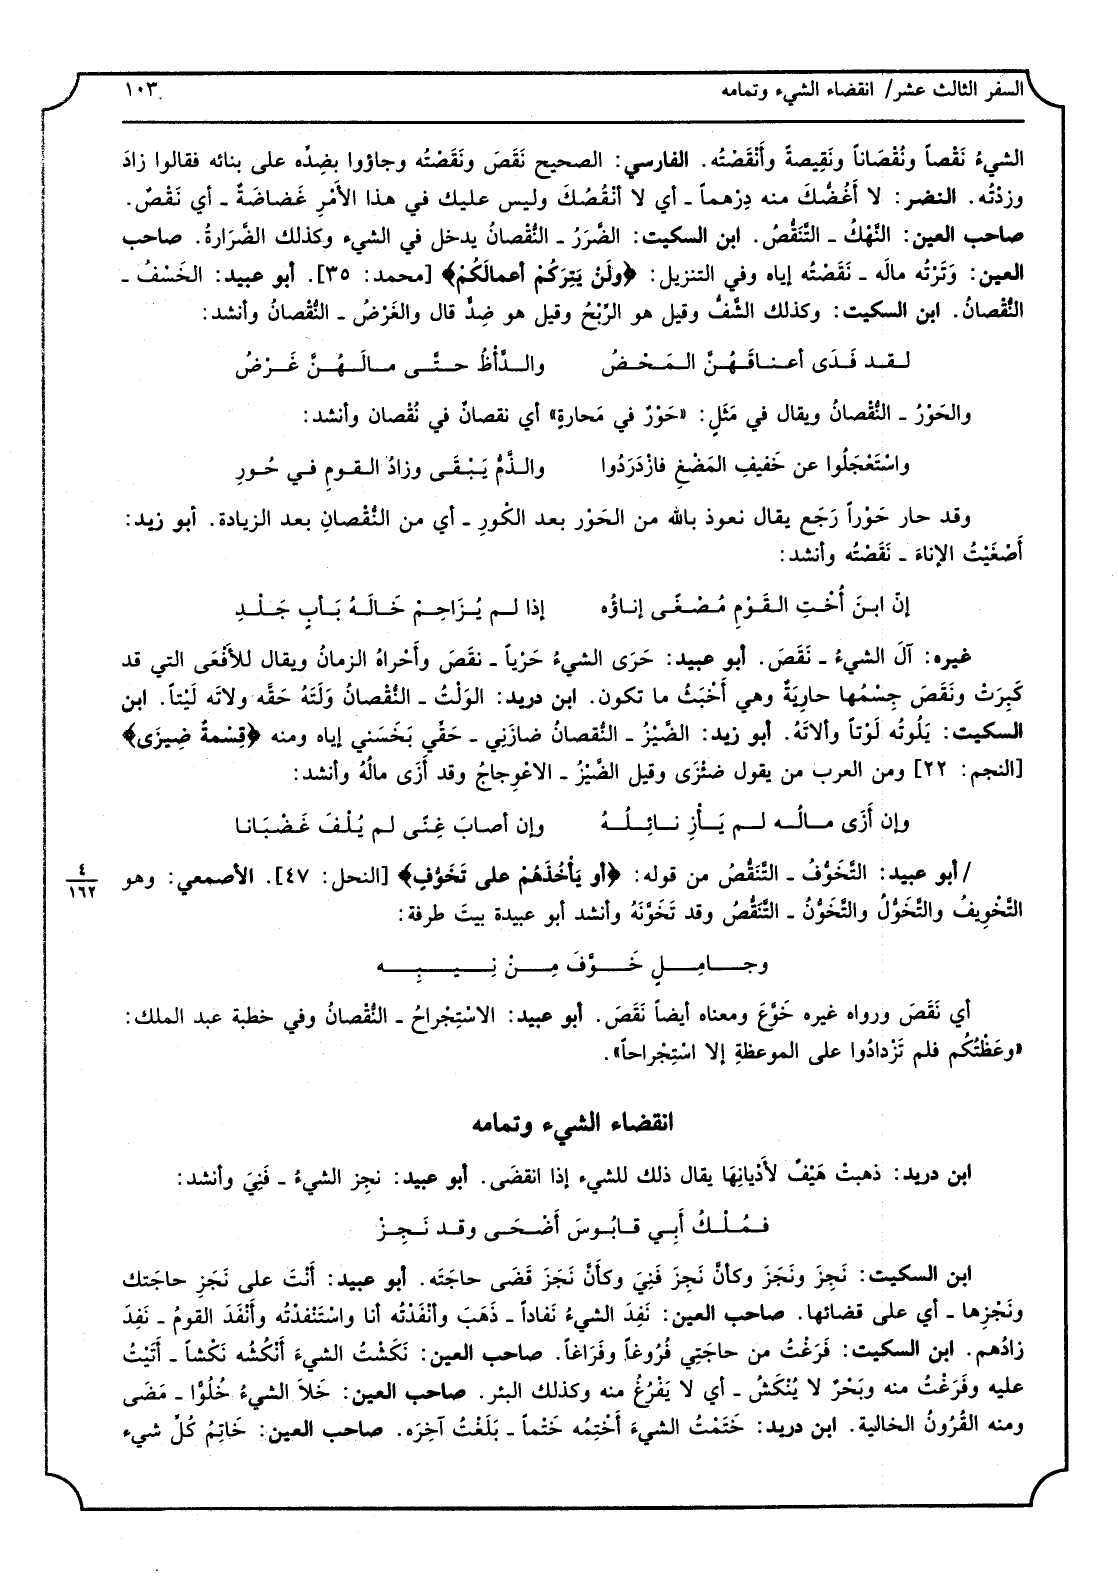 السفر الثالث عشر/ انقضاء الشيء وتمامه ١٠٣
الشيءُ نَقْصاً ونُقْصَاناً ونَقِيصةً وأَنْقَصْتُه. الفارسي: الصحيح نَقَصَ ونَقَصْتُه وجاؤوا بضِدِّه على بنائه فقالوا زادَ
وزدْتُه. النضر: لا أَغُضُّكَ منه دِرْهماً ـ أي لا أنْقُصُكَ وليس عليك في هذا الأَمْرِ غَضاضَةٌ ـ أي نَقْصٌ.
صاحب العين: النَّهْكُ ـ التَّنَقُّصُ. ابن السكيت: الضَّرَرُ ـ النُّقْصانُ يدخل في الشيء وكذلك الضَّرَارةُ. صاحب
العين: وَتَرْتُه مالَه ـ نَقَصْتُه إياه وفي التنزيل: ﴿ولَنْ يَتِرَكُمْ أعمالَكُمْ﴾ [محمد: ٣٥]. أبو عبيد: الخَسْفُ ـ
النُّقْصانُ. ابن السكيت: وكذلك الشَّفُّ وقيل هو الرِّبْحُ وقيل هو ضِدٌّ قال والغَرْضُ ـ النُّقْصانُ وأنشد:
لـقـد فَـدَى أعـنـاقَـهُـنَّ الـمَـحْـضُ والـدَّأْظُ حـتَّـى مـالَـهُـنَّ غَـرْضُ
والحَوْرُ ـ النُّقْصانُ ويقال في مَثَلٍ: «حَوْرٌ في مَحارةٍ» أي نقصانٌ في نُقْصان وأنشد:
واسْتَعْجَلُوا عن خَفيفِ المَضْغِ فازْدَرَدُوا والـذَّمُّ يَـبْـقَـى وزادُ الـقـومِ فـي حُـورِ
وقد حار حَوْراً رَجَع يقال نعوذ بالله من الحَوْر بعد الكَورِ ـ أي من النُّقْصانِ بعد الزيادة. أبو زيد:
أَصْغَيْتُ الإناءَ ـ نَقَصْتُه وأنشد:
إنّ ابـنَ أُخْـتِ الـقَـوْمِ مُـصْـغًـى إنـاؤُه إذا لـم يُـزَاحِـمْ خَـالَـهُ بَـأبٍ جَـلْـدِ
غيره: آلَ الشيءُ ـ نَقَصَ. أبو عبيد: حَرَى الشيءُ حَرْياً ـ نقَصَ وأَحْراهُ الزمانُ ويقال للأَفْعَى التي قد
كَبِرَتْ ونَقَصَ جِسْمُها حارِيَةٌ وهي أَخْبَثُ ما تكون. ابن دريد: الوَلْتُ ـ النُّقْصانُ وَلَتَهُ حَقَّه ولاتَه لَيْتاً. ابن
السكيت: يَلُوتُه لَوْتاً وألاتَهُ. أبو زيد: الضَّيْزُ ـ النُّقصانُ ضازَنِي ـ حَقّي بَخَسَني إياه ومنه ﴿قِسْمةٌ ضِيزَى﴾
[النجم: ٢٢] ومن العرب من يقول ضئْزَى وقيل الضَّيْزُ ـ الاعْوِجاجُ وقد أَزَى مالُهُ وأنشد:
وإن أَزَى مـالُـه لـم يَـأْزِ نـائِـلُـهُ وإن أصابَ غِنًى لم يُلْفَ غَضْبَانا
/ أبو عبيد: التَّخَوُّفُ ـ التَّنَقُّصُ من قوله: ﴿أو يَأْخُذَهُمْ على تَخَوُّفٍ﴾ [النحل: ٤٧]. الأصمعي: وهو
٤
١٦٢
التَّخْوِيفُ والتَّخَوُّلُ والتَّخَوُّنُ ـ التَّنَقُّصُ وقد تَخَوَّنَهُ وأنشد أبو عبيدة بيتَ طرفة:
وجـامِـلٍ خَـوَّفَ مِـنْ نِـيـبِـه
أي نَقَصَ ورواه غيره خَوَّعَ ومعناه أيضاً نَقَصَ. أبو عبيد: الاسْتِجْراحُ ـ النُّقْصانُ وفي خطبة عبد الملك:
«وعَظْتُكُم فلم تَزْدادُوا على الموعظةِ إلا اسْتِجْراحاً».
انقضاء الشيء وتمامه
ابن دريد: ذهبتْ هَيْفٌ لأَذْيانِهَا يقال ذلك للشيء إذا انقضَى. أبو عبيد: نجِز الشيءُ ـ فَنِيَ وأنشد:
فـمُـلْـكُ أَبِـي قـابُـوسَ أَضْـحَـى وقـد نَـجِـزْ
ابن السكيت: نَجِزَ ونَجَزَ وكأنَّ نَجِزَ فَنِيَ وكأَنَّ نَجَزَ قَضَى حاجَتَه. أبو عبيد: أَنْتَ على نَجَزِ حاجَتك
ونَجْزِها ـ أي على قضائها. صاحب العين: نَفِدَ الشيءُ نَفاداً ـ ذَهَبَ وأنْفَدْتُه أنا واسْتَنْفدْتُه وأَنْفَدَ القومُ ـ نَفِدَ
زادُهم. ابن السكيت: فَرَغْتُ من حاجَتِي فُرُوغاً وفَرَاغاً. صاحب العين: نَكَشْتُ الشيءَ أَنْكُشُه نَكْشاً ـ أَتَيْتُ
عليه وفَرَغْتُ منه وبَحْرٌ لا يُنْكَشُ ـ أي لا يَفْرُغُ منه وكذلك البئر. صاحب العين: خَلاَ الشيءُ خُلُوًّا ـ مَضَى
ومنه القُرُونُ الخالية. ابن دريد: خَتَمْتُ الشيءَ أَخْتِمُه خَتْماً ـ بَلَغْتُ آخِرَه. صاحب العين: خَاتِمُ كُلِّ شيء